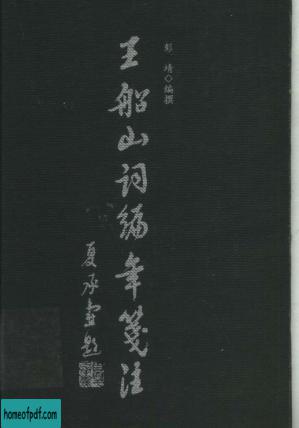 彭靖◇编撰
王船山词编年笺注
夏承焘题
homeofpdf.com